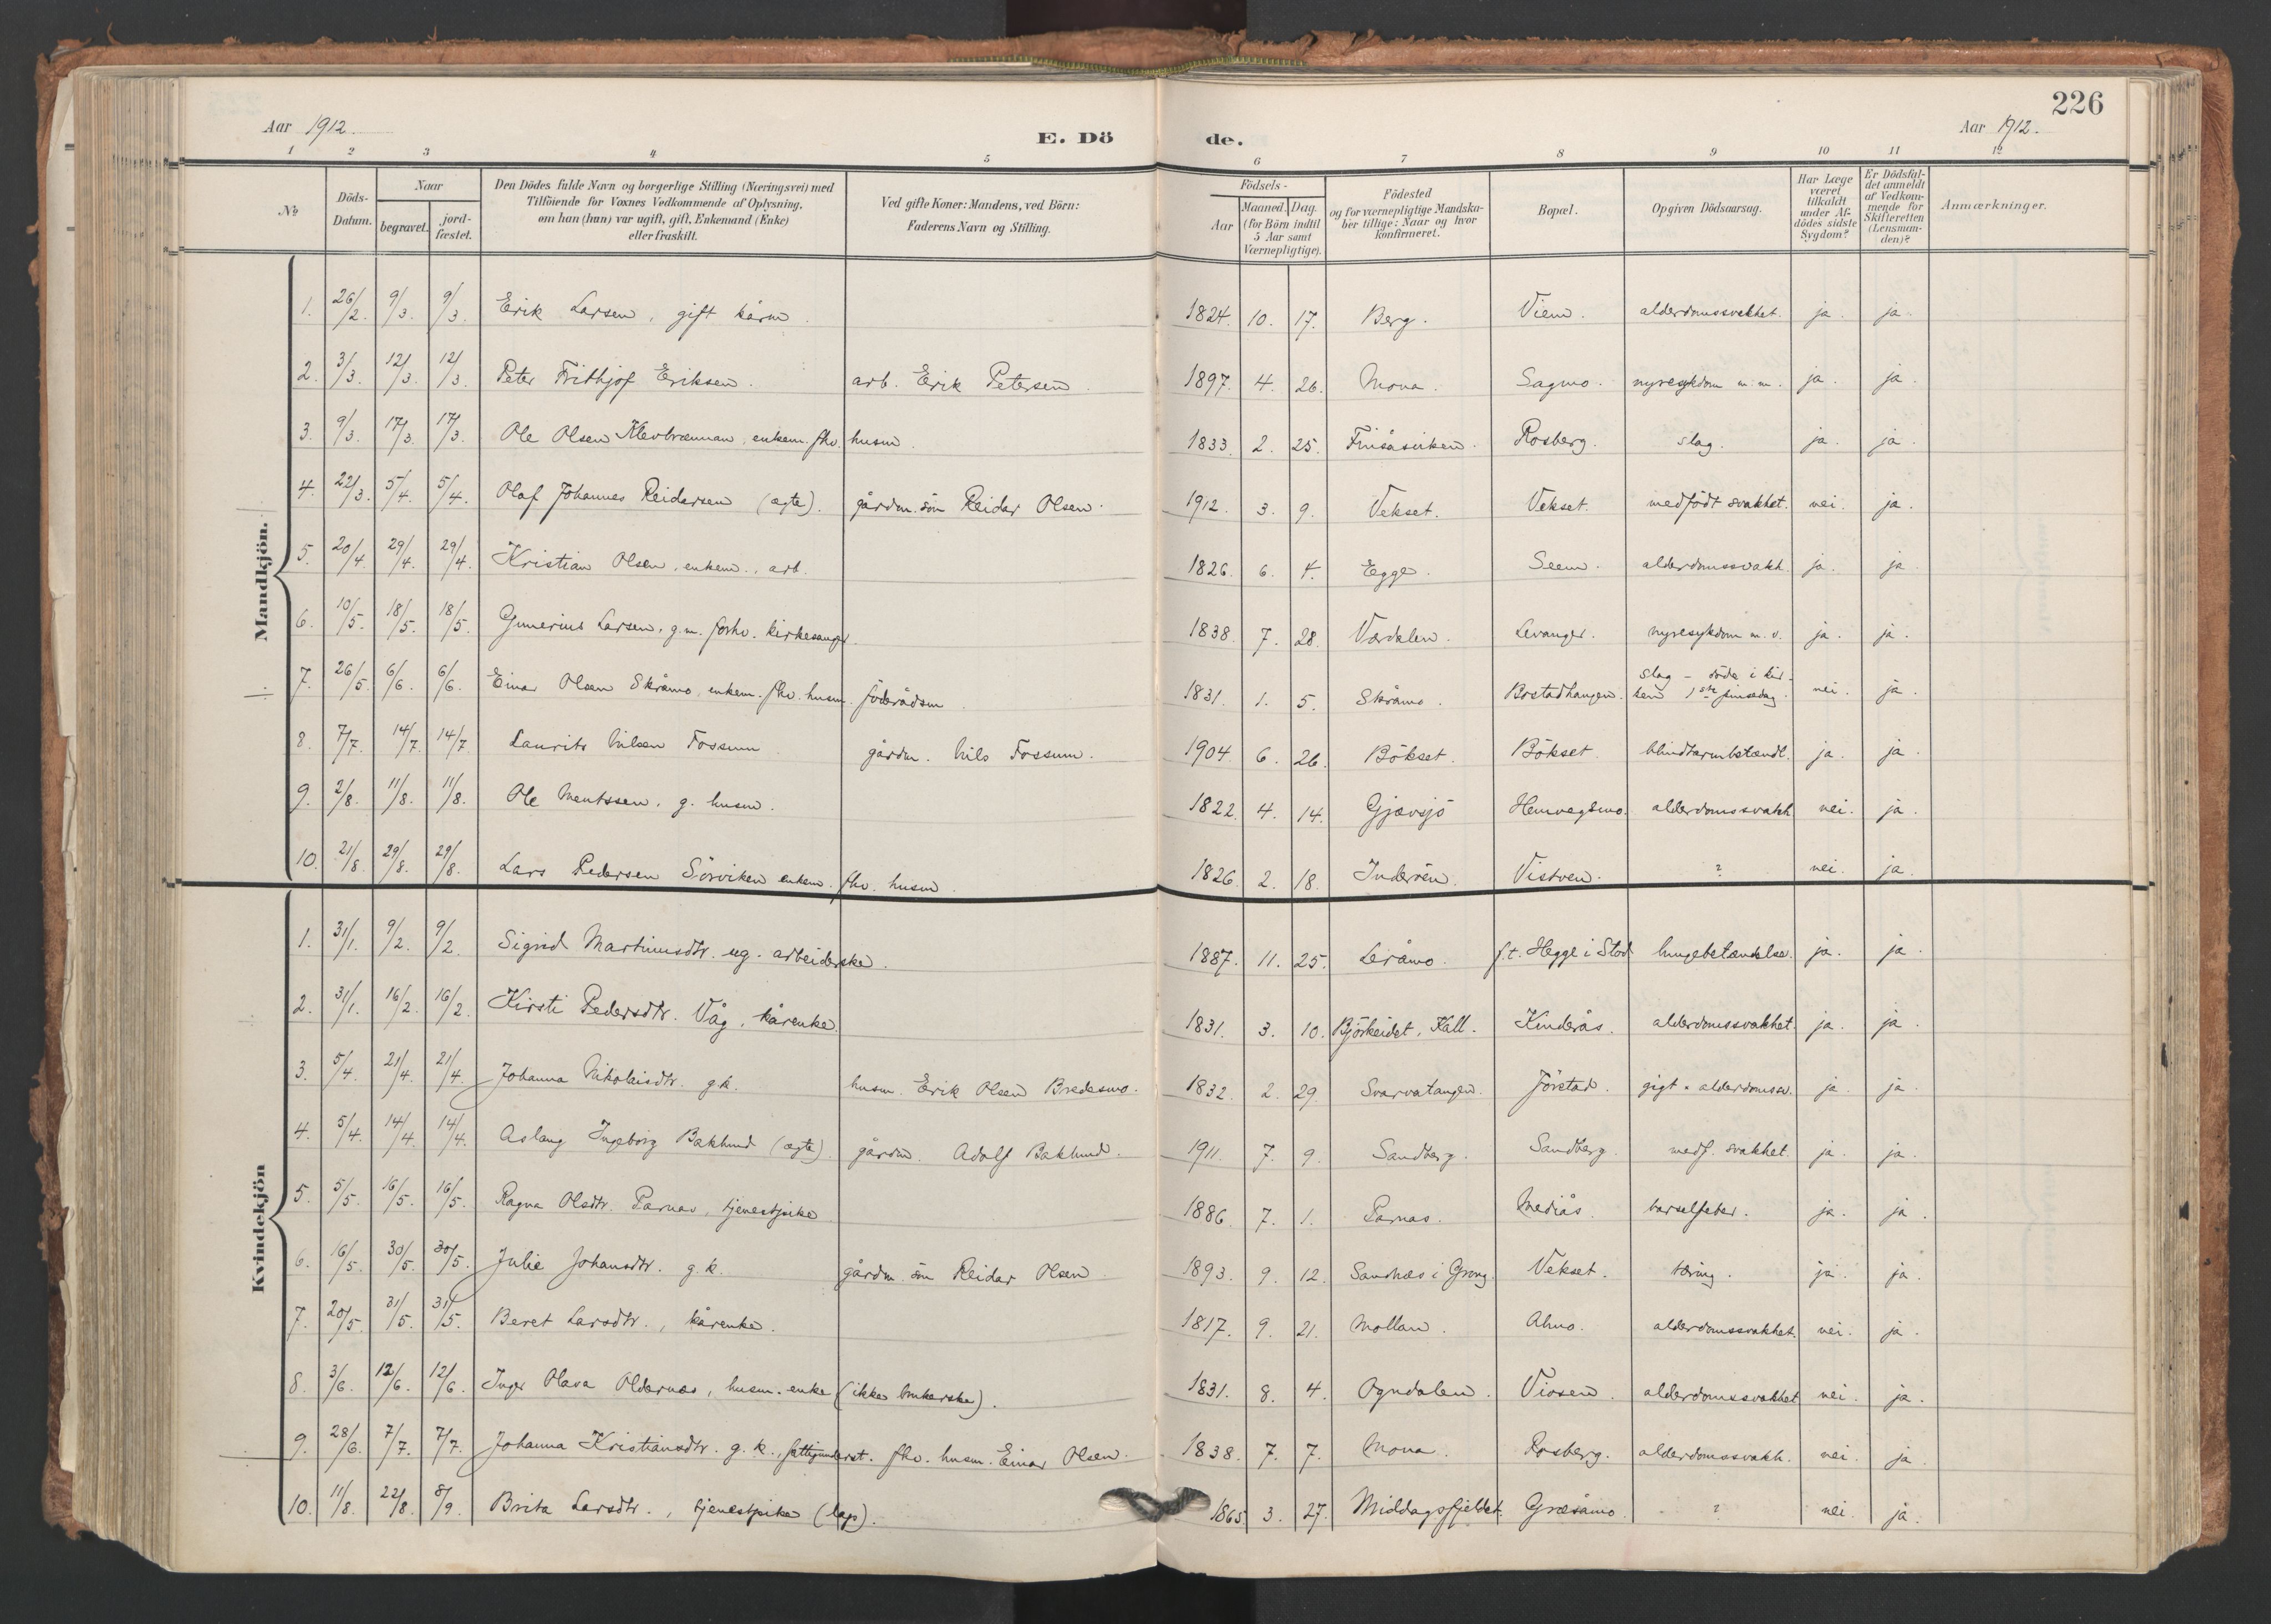 226
Aar 1912. E. Dö de. Aar 1912.
1 2 3 4 5 6 7 8 9 10 11 12
№ Döds-Datum. Naar begravet. jord-fæstet. Den Dödes fulde Navn og borgerlige Stilling (Næringsvei) med Tilföiende for Voxnes Vedkommende af Oplysning, om han (hun) var ugift, gift, Enkemand (Enke) eller fraskilt. Ved gifte Koner: Mandens, ved Börn: Faderens Navn og Stilling. Födsels- Aar Maaned. Dag. (for Börn indtil 5 Aar samt Værnepligtige). Födested og for værnepligtige Mandskaber tillige: Naar og hvor konfirmeret. Bopæl. Opgiven Dödsaarsag. Har Læge været tilkaldt under Afdödes sidste Sygdom? Er Dödsfaldet anmeldt af Vedkommende for Skifteretten (Lensmanden)? Anmærkninger.
Mandkjön.
1. 26/2 9/3. 9/3. Erik Larsen, gift kårm. 1824. 10. 17. Berg. Viem. alderdomssvakhet. ja. ja.
2. 3/3. 12/3. 12/3. Peter Frithjof Eriksen. arb. Erik Petersen. 1897. 4. 26. Mona. Sagmo. nyresykdom m.m. ja. ja.
3. 9/3. 17/3. 17/3. Ole Olsen Klevbrennan, enkem. fhv. husm. 1833. 2. 25. Rosberg. slag. ja. ja.
4. 22/3. 5/4. 5/4. Olaf Johannes Reidarsen (ægte). gårdm. sön Reidar Olsen. 1912. 3. 9. Vekset. Vekset. medfödt svakhet. nei. ja.
5. 20/4. 29/4. 29/4. Kristian Olsen, enkem., arb. 1826. 6. 4. Egge. Seem. alderdomssvakh. ja. ja
6. 10/5. 18/5. 18/5. Gunerius Larsen, g.m. forhv. kirkesanger. 1838. 7. 28. Værdalen. Levanger. nyresykdom m.v. ja. ja.
7. 26/5. 6/6. 6/6. Einar Olsen Skråmo, enkem. fhv. husm. föderådsm 1831. 1. 5. Skråmo. Bostadhaugen. slag - döde i kirken 1ste pinsedag. nei. ja.
8. 7/7. 14/7. 14/7 Laurits Nilsen Fossum gårdm. Nils Fossum. 1904. 6. 26. Bökset. Bökset blindtarmbetændl. ja. ja
9. 2/8. 11/8. 11/8. Ole Mentssen, g. husm. 1822. 4. 14. Gjævsjö Hemvegsmo. alderdomssvakh nei. ja.
10. 21/8 29/8. 29/8. Lars Pedersen Sörviken enkem. fhv. husm. 1826. 2. 18. Inderöen. Vistven. ? nei. ja.
Kvindekjön
1. 31/1. 9/2. 9/2 Sigrid Martinusdtr. ug. arbeiderske. 1887. 11. 25. Leråmo. f.t. Hegge i Stod lungebetændelse. ja. ja.
2. 31/1. 16/2. 16/2. Kirsti Pedersdtr. Våg, kårenke. 1831. 3. 10. Björkeidet, Kall. Kinderås. alderdomssvakhet. ja. ja.
3. 5/4. 21/4. 21/4. Johanna Nikolaisdtr. g.k. husm. Erik Olsen Bredesmo. 1832. 2. 29. Svarvatangen. Jörstad. gigt. alderdomssv. ja. ja.
4. 5/4. 14/4. 14/4. Aslaug Ingeborg Baklund (ægte). gårdm. Adolf Baklund. 1911. 7. 9. Sandberg. Sandberg. medf. svakhet ja. ja.
5. 5/5. 16/5. 16/5. Ragna Olsdtr. Parnas, tjenestpike 1886. 7. 1. Parnas. Mediås. barselfeber. ja. ja.
6. 16/5. 30/5. 30/5. Julie Johansdtr. g.k. gårdm. sön Reidar Olsen. 1893. 9. 12. Sandnæs i Grong. Vekset. tæring. ja. ja.
7. 20/5. 31/5. 31/5. Beret Larsdtr., kårenke. 1817. 9. 21. Mollan. Almo. alderdomssvakhet. nei. ja.
8. 3/6. 12/6. 12/6. Inger Olava Oldernæs, husm. enke (ikke brukerske). 1831. 8. 4. Ogndalen. Viosen. alderdomssvakhet nei. ja.
9. 28/6. 7/7. 7/7. Johanna Kristiansdtr. g.k., fattigunderst. fhv. husm. Einar Olsen. 1838. 7. 7. Mona. Rosberg. alderdomssvakh. nei. ja.
10. 11/8. 22/8. 8/9. Brita Larsdtr., tjenestpike (lap). 1865 3. 27. Middagsfjeldet. Græsåmo. ? nei. ja.